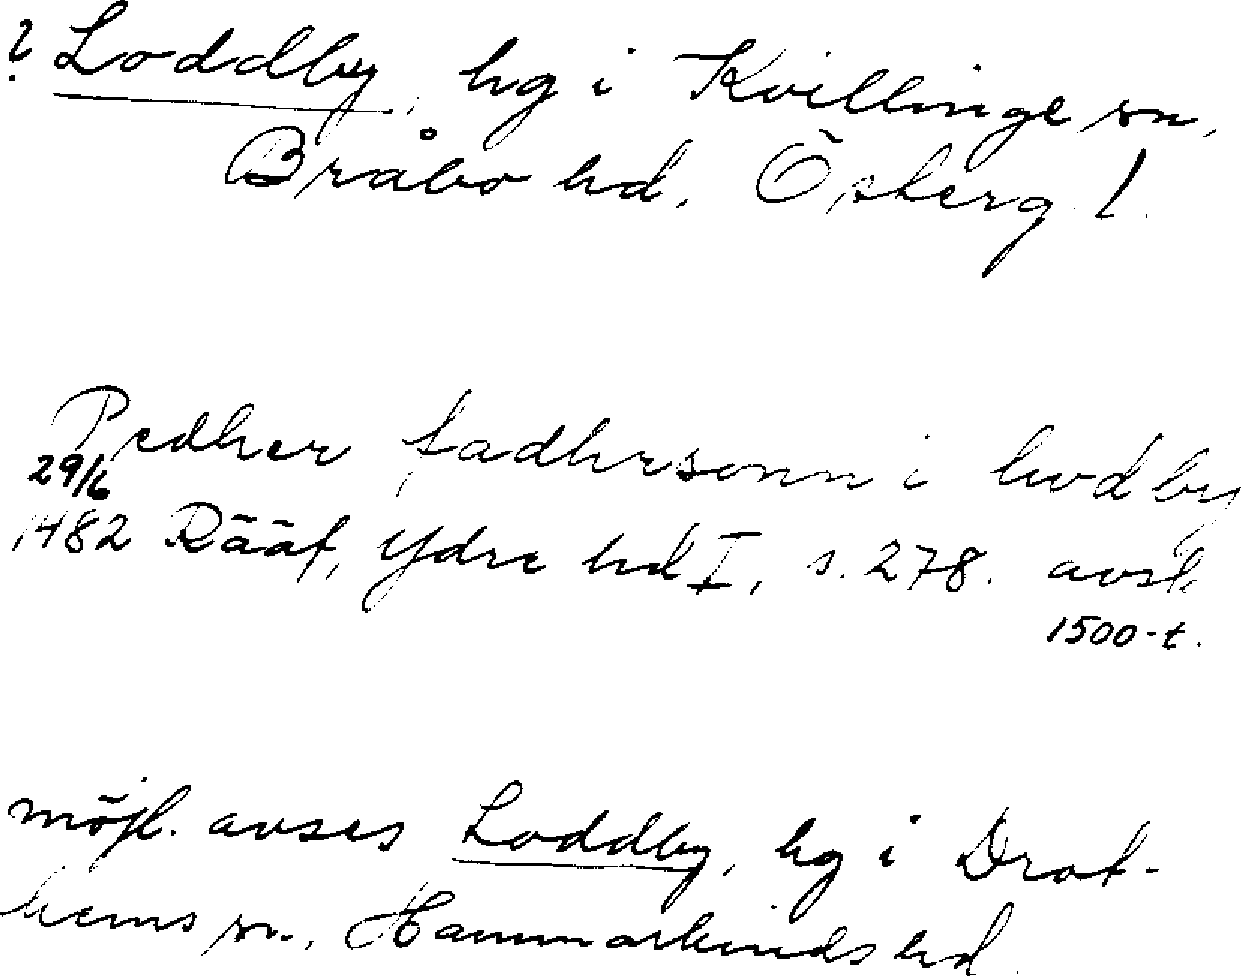 ? Loddby, hg i Kvillinge sn,
Bråbo hd, Österg. l.
Pedher fadhrsonn i lwdby
29/6
1482 Rääf, Ydre hd I, s. 278. avskr.
1500-t.
möjl. avses Loddby, hg i Drot-
hems sn, Hammarkinds hd